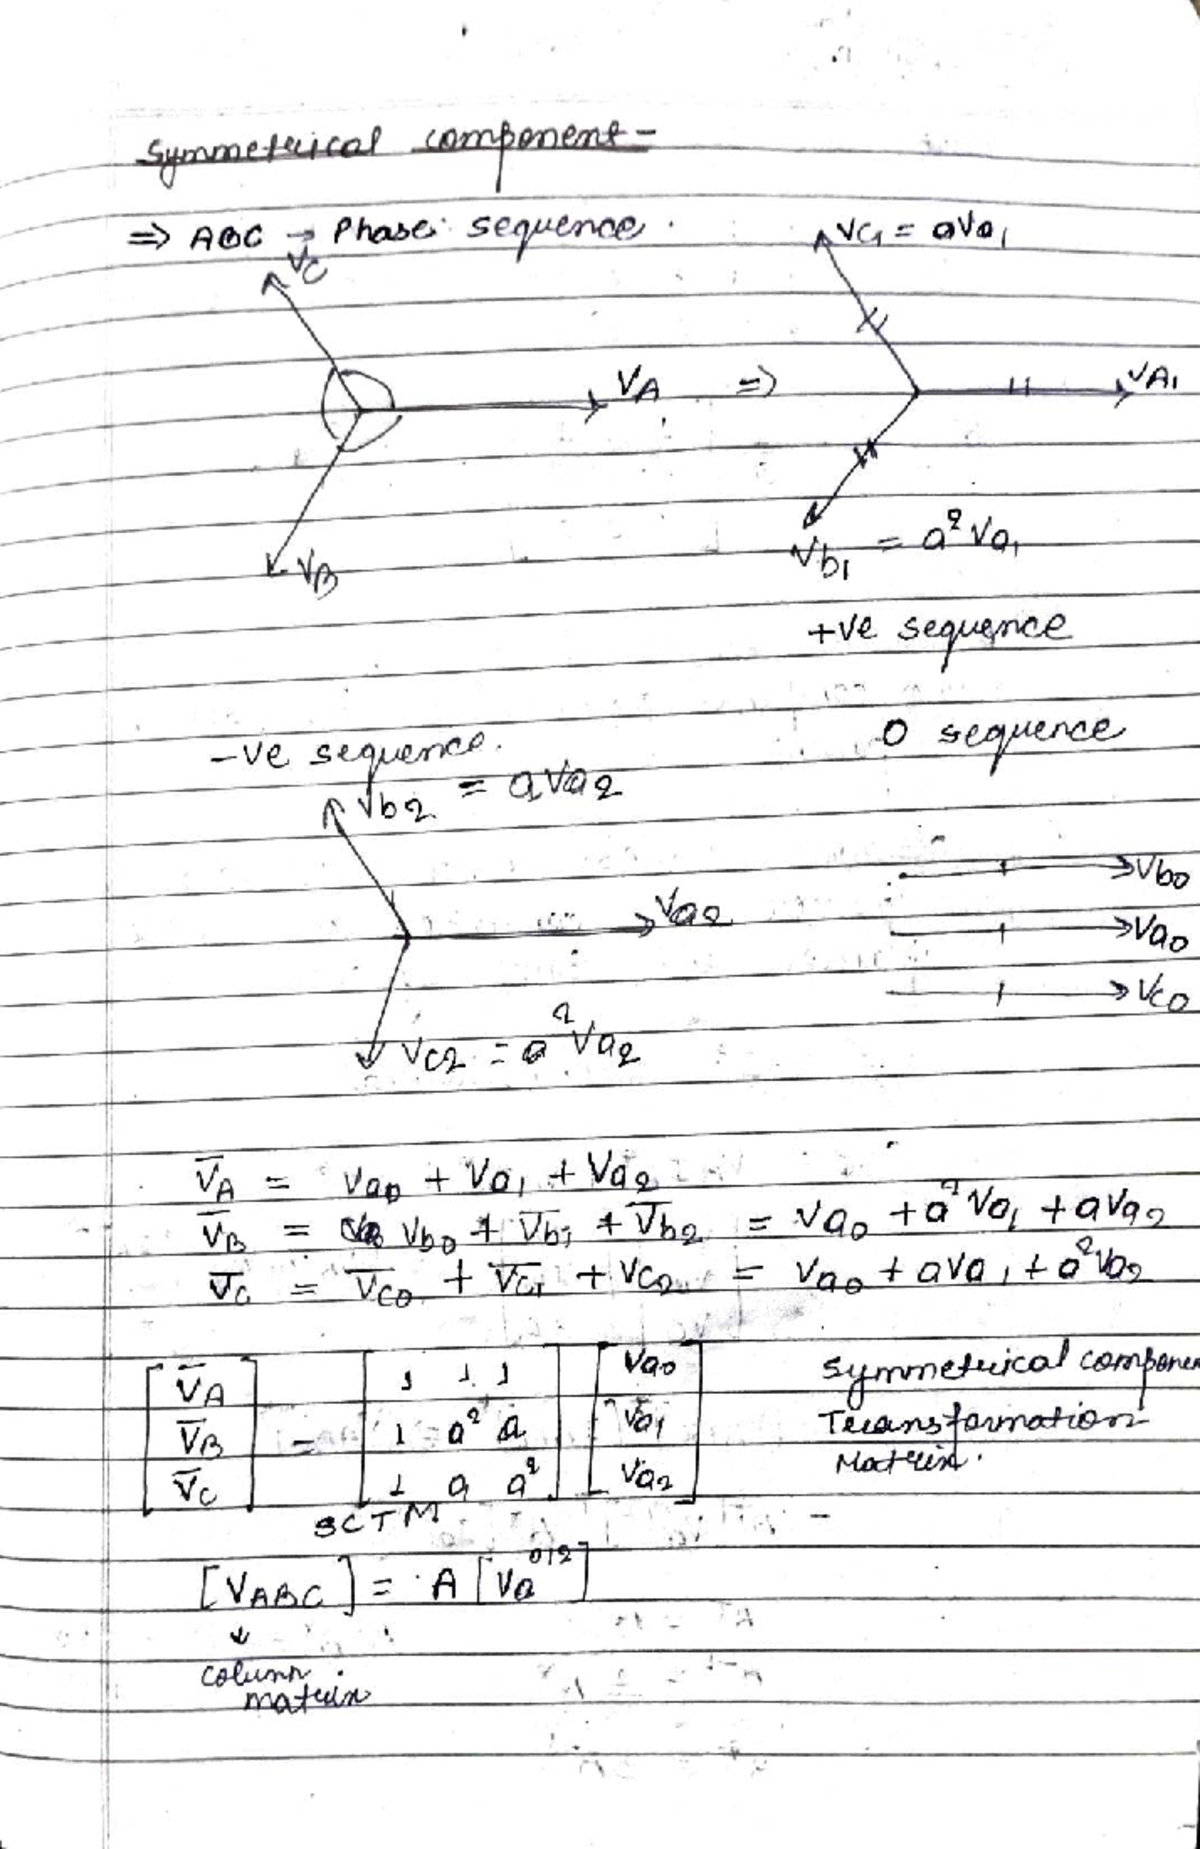 Symmetrical component -
⇒ ABC → Phase sequence.
VC
VA ⇒
VB
VC1 = aVa1
VA1
Vb1 = a² Va1
+ve sequence
-ve sequence.
Vb2 = aVa2
Va2
Vc2 = a² Va2
0 sequence
Vb0
Va0
Vc0
V̅A = Va0 + Va1 + Va2
V̅B = Vb0 + V̅b1 + V̅b2 = Va0 + a² Va1 + aVa2
V̅C = V̅C0 + V̅C1 + VC2 = Va0 + aVa1 + a²Va2
[V̅A] = [1 1 1] [Va0] Symmetrical componen
[V̅B] [1 a² a] [Va1] Transformation
[V̅C] [1 a a²] [Va2] Matrix.
SCTM
[VABC] = A [Va⁰¹²]
↓
column
matrix